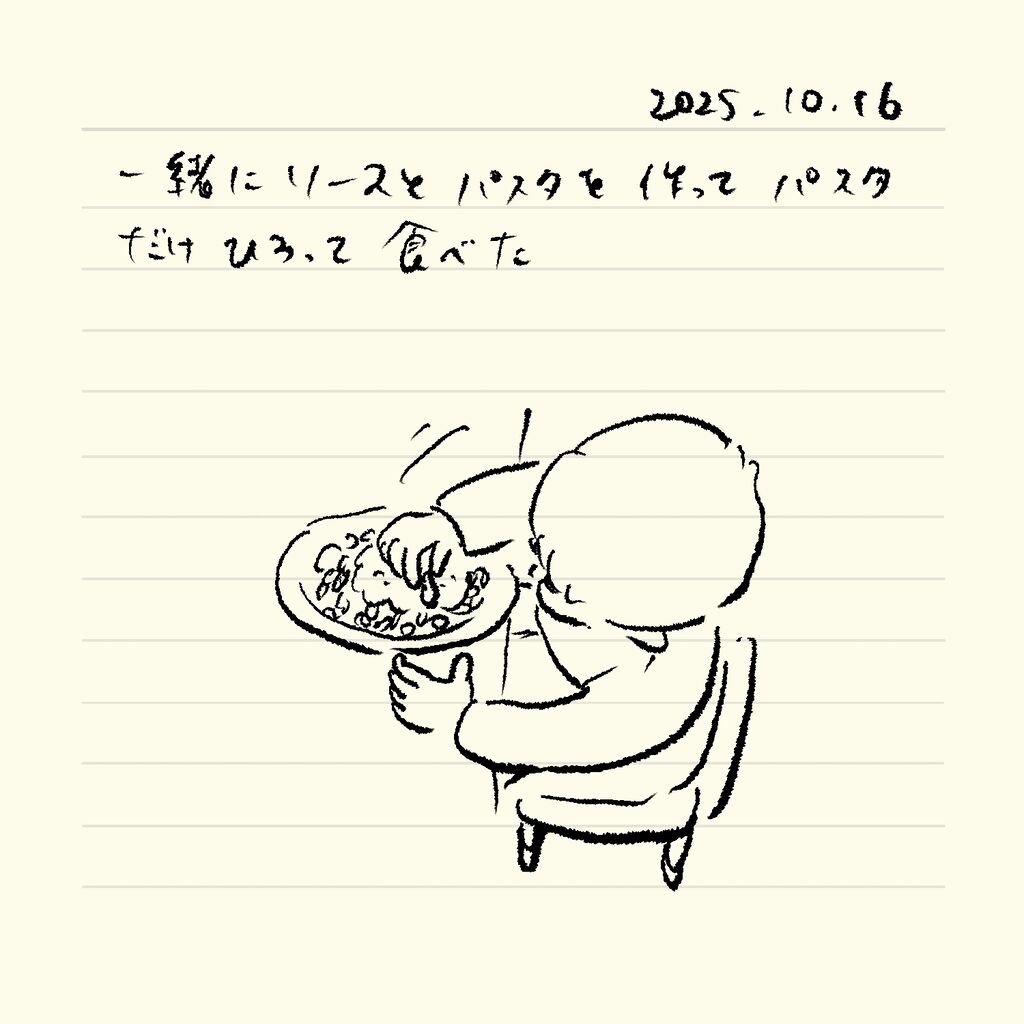 2025.10.16
一緒にソースとパスタを作ってパスタ
だけひろって食べた